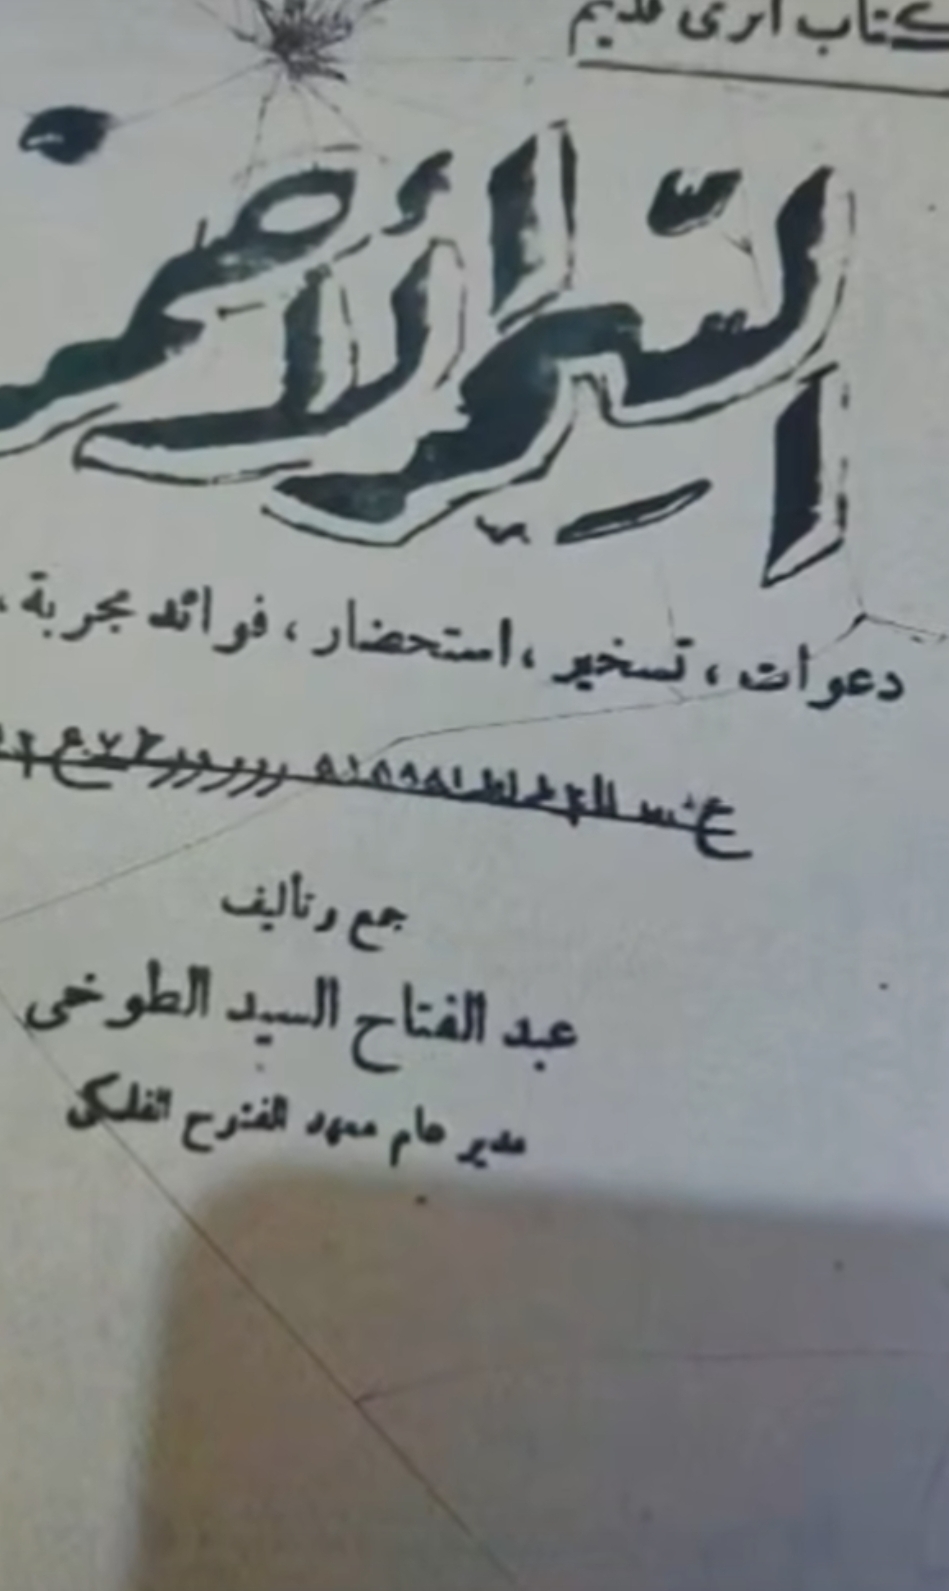 كتاب اثرى قديم
السر الأحمر
دعوات ، تسخير ، استحضار ، فوائد مجربة ،
جمع وتأليف
عبد الفتاح السيد الطوخى
مدير عام معهد الفتوح الفلكى